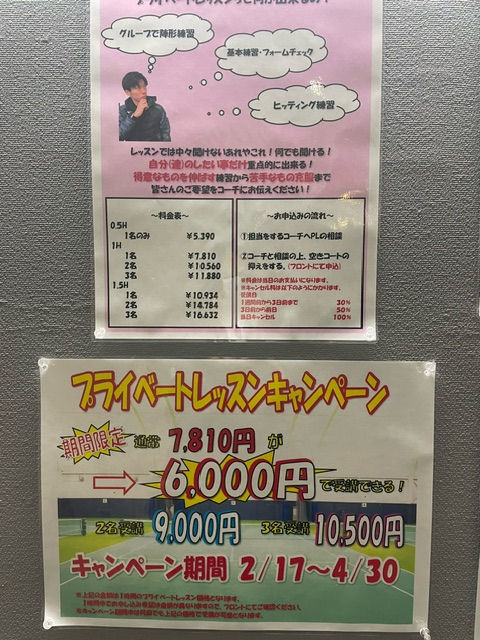 プライベートレッスンって何が出来るの？
グループで陣形練習
基本練習・フォームチェック
ヒッティング練習
レッスンでは中々聞けないあれやこれ！何でも聞ける！
自分(達)のしたい事だけ重点的に出来る！
得意なものを伸ばす練習から苦手なもの克服まで
皆さんのご要望をコーチにお伝えください！
～料金表～
0.5H
1名のみ ¥5.390
1H
1名 ¥7.810
2名 ¥10.560
3名 ¥11.880
1.5H
1名 ¥10.934
2名 ¥14.784
3名 ¥16.632
～お申込みの流れ～
①担当をするコーチへPLの相談
②コーチと相談の上、空きコートの
抑えをする。(フロントにて申込)
※料金は当日のお支払いになります。
※キャンセル料は以下のようにかかります。
受講日
1週間前から3日前まで 30%
3日前から前日 50%
当日キャンセル 100%
プライベートレッスンキャンペーン
期間限定 通常 7,810円 が
6,000円で受講できる！
2名受講 9,000円 3名受講 10,500円
キャンペーン期間 2/17～4/30
※上記の金額は1時間のプライベートレッスン価格となります。
1時間半でお申し込み希望は金額が異なりますので、フロントにてご確認ください。
※キャンペーン期間中は何度でも上記の価格で受講が可能となります。